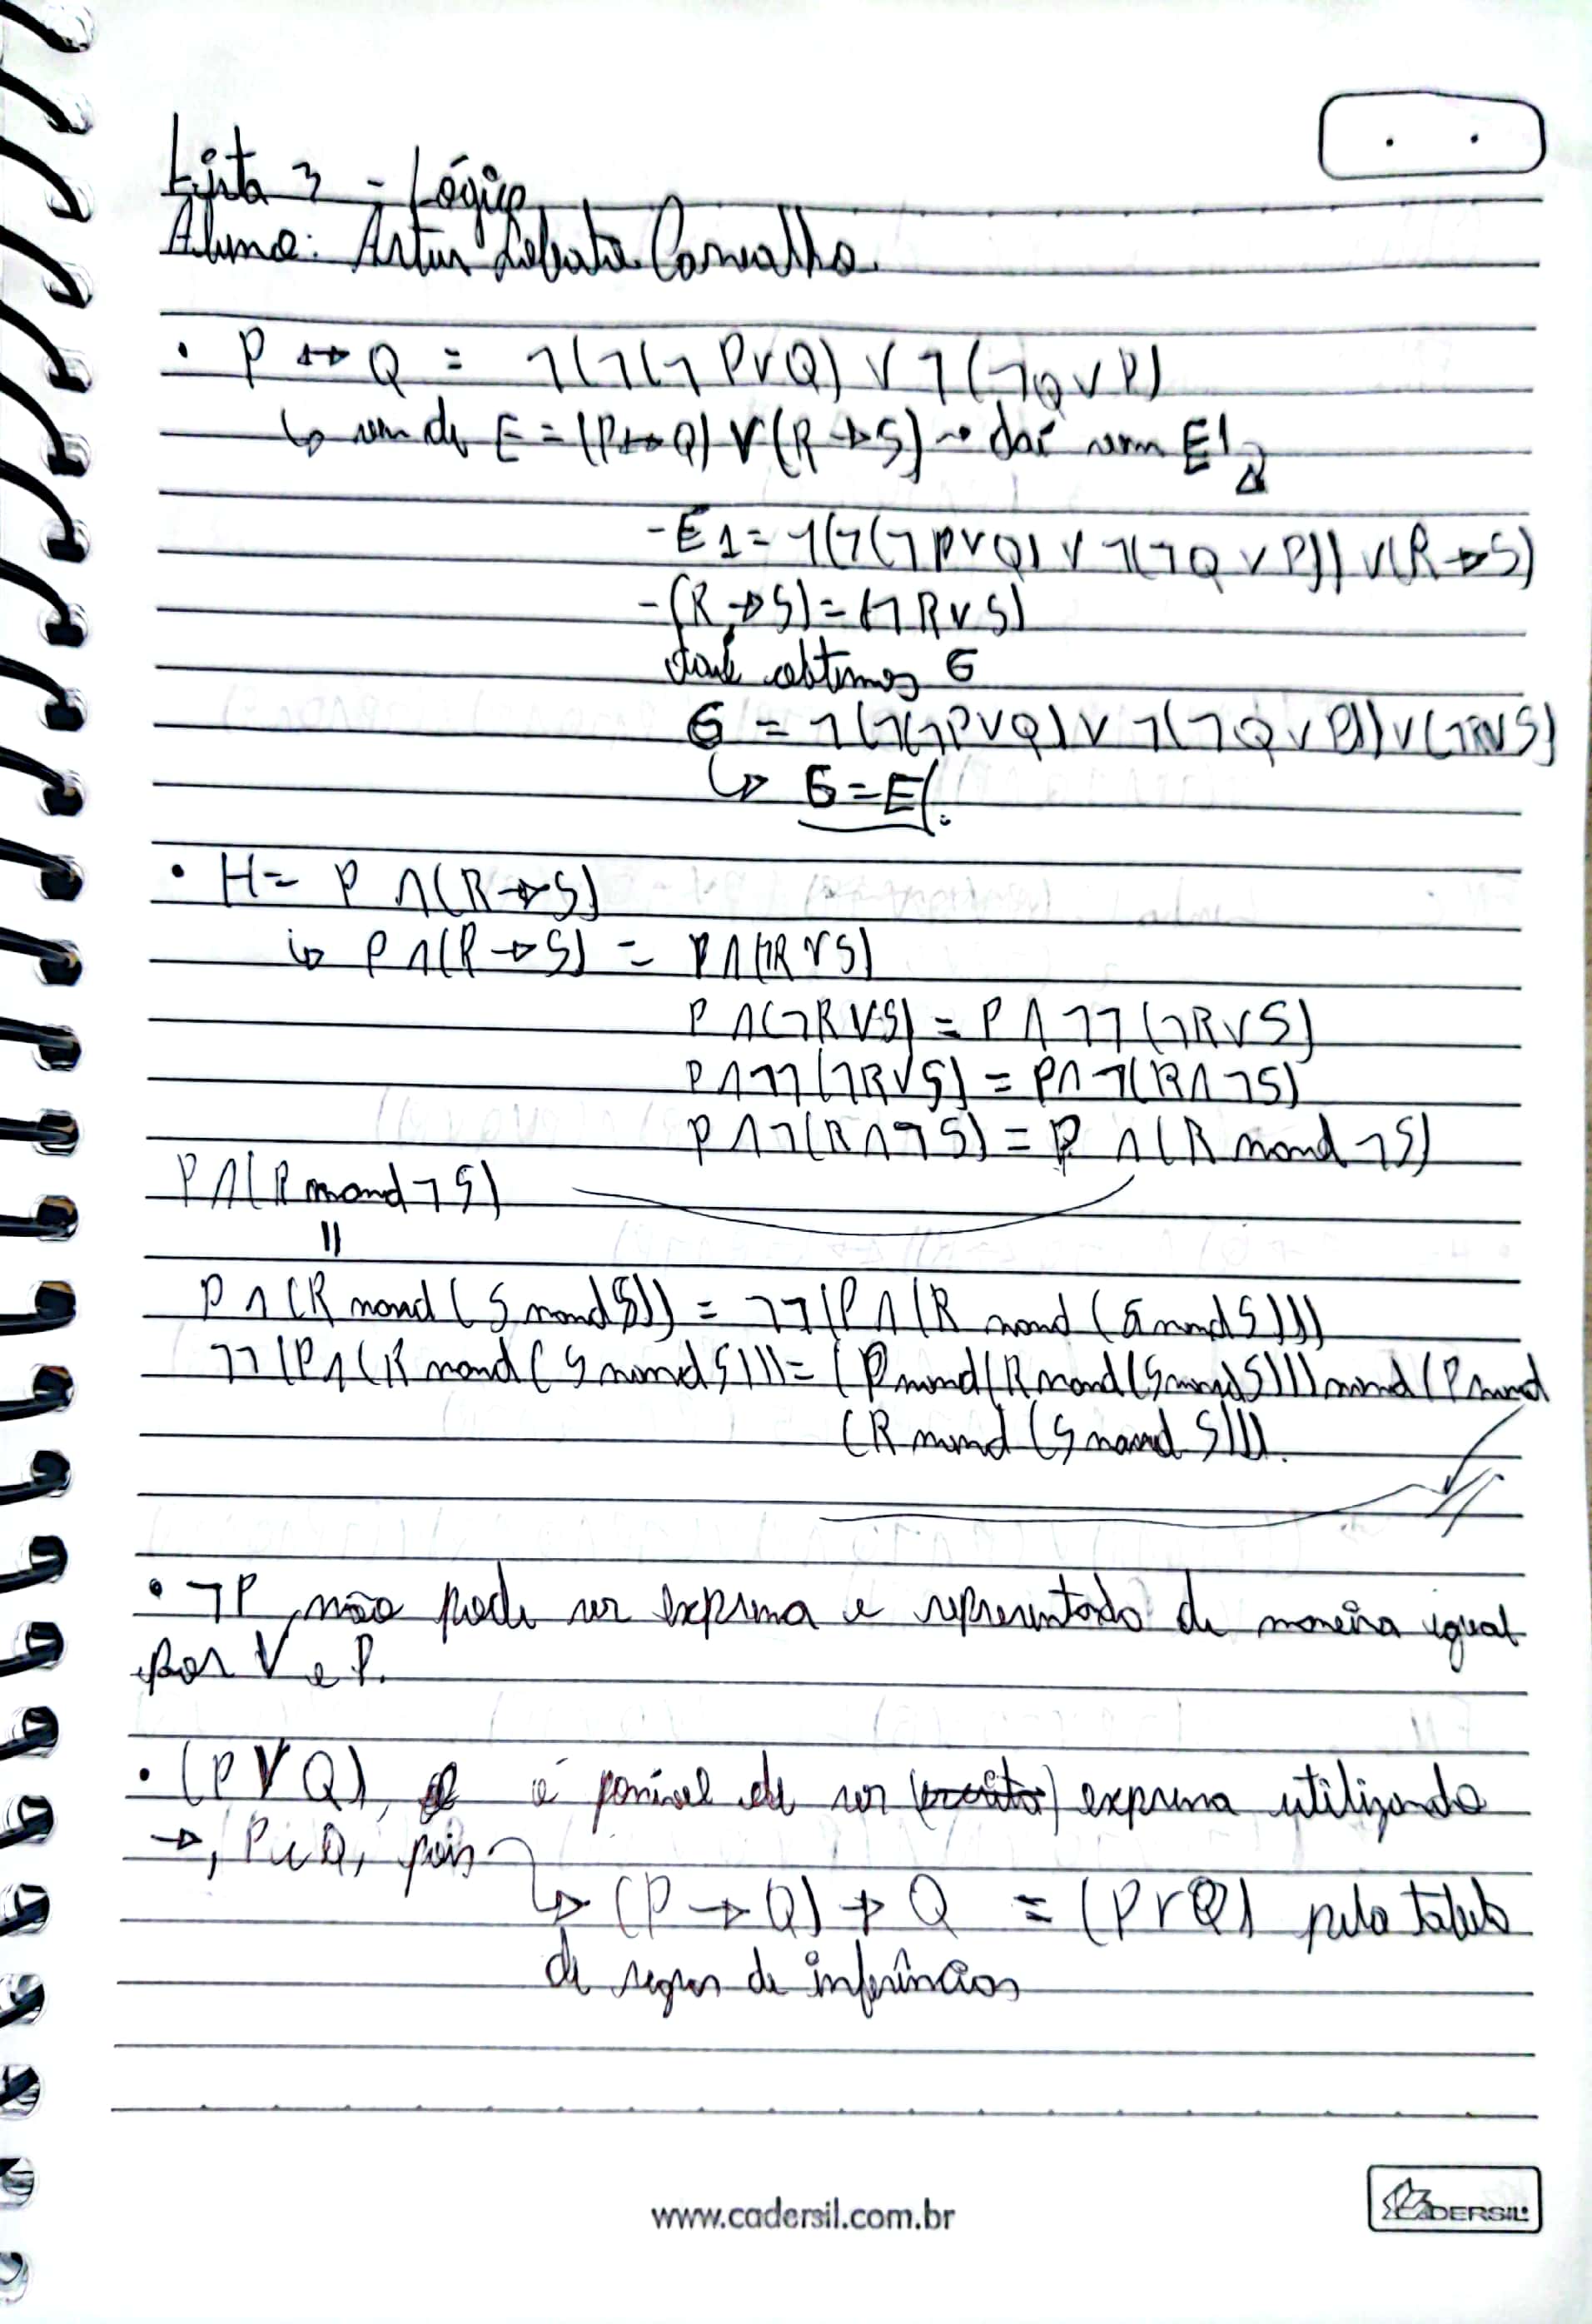 Lista 3 - Lógica
Aluno: Artur Carvalho.
• P ↔ Q = ¬(¬(¬ P v Q) v ¬(¬Q v P)
↳ vem de E = (P↔Q) v (R → S) → daí vem E1
- E1 = ¬(¬(¬P v Q) v ¬(¬Q v P)) v (R → S)
- (R → S) = (¬R v S)
daí obtemos G
G = ¬(¬(¬P v Q) v ¬(¬Q v P)) v (¬R v S)
↳ G = E.
• H = P ∧ (R → S)
↳ P ∧ (R → S) = P ∧ (¬R v S)
P ∧ (¬R v S) = P ∧ ¬¬(¬R v S)
P ∧ ¬¬(¬R v S) = P ∧ ¬(R ∧ ¬S)
P ∧ ¬(R ∧ ¬S) = P ∧ (R nand ¬S)
P ∧ (R nand ¬S)
||
P ∧ (R nand (S nand S)) = ¬¬(P ∧ (R nand (S nand S)))
¬¬(P ∧ (R nand (S nand S))) = (P nand (R nand (S nand S))) nand (P nand
(R nand (S nand S))).
• ¬P, não pode ser expressa e representado de maneira igual
por V e P.
• (P V Q), é possível de ser (escrita) expressa utilizando
→, P e Q, pois
↳ (P → Q) → Q = (P v Q) pela tabela
de regras de inferências
www.cadersil.com.br
CADERSIL